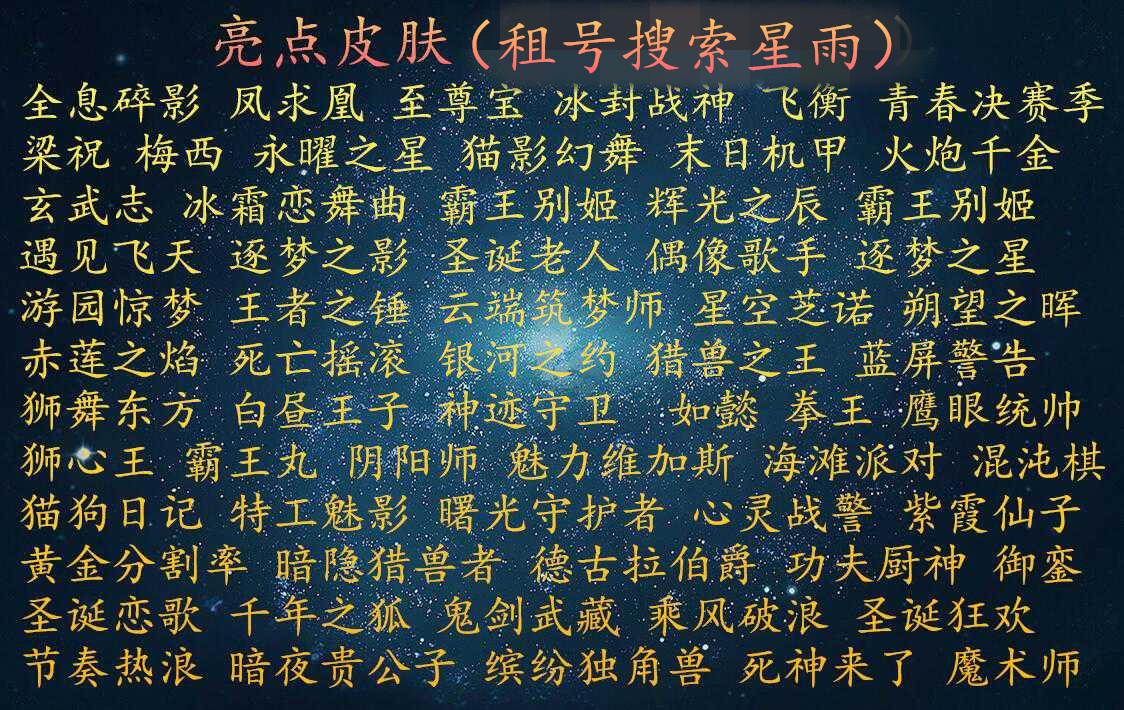 亮点皮肤(租号搜索星雨)
全息碎影 凤求凰 至尊宝 冰封战神 飞衡 青春决赛季
梁祝 梅西 永曜之星 猫影幻舞 末日机甲 火炮千金
玄武志 冰霜恋舞曲 霸王别姬 辉光之辰 霸王别姬
遇见飞天 逐梦之影 圣诞老人 偶像歌手 逐梦之星
游园惊梦 王者之锤 云端筑梦师 星空芝诺 朔望之晖
赤莲之焰 死亡摇滚 银河之约 猎兽之王 蓝屏警告
狮舞东方 白昼王子 神迹守卫 如懿 拳王 鹰眼统帅
狮心王 霸王丸 阴阳师 魅力维加斯 海滩派对 混沌棋
猫狗日记 特工魅影 曙光守护者 心灵战警 紫霞仙子
黄金分割率 暗隐猎兽者 德古拉伯爵 功夫厨神 御銮
圣诞恋歌 千年之狐 鬼剑武藏 乘风破浪 圣诞狂欢
节奏热浪 暗夜贵公子 缤纷独角兽 死神来了 魔术师